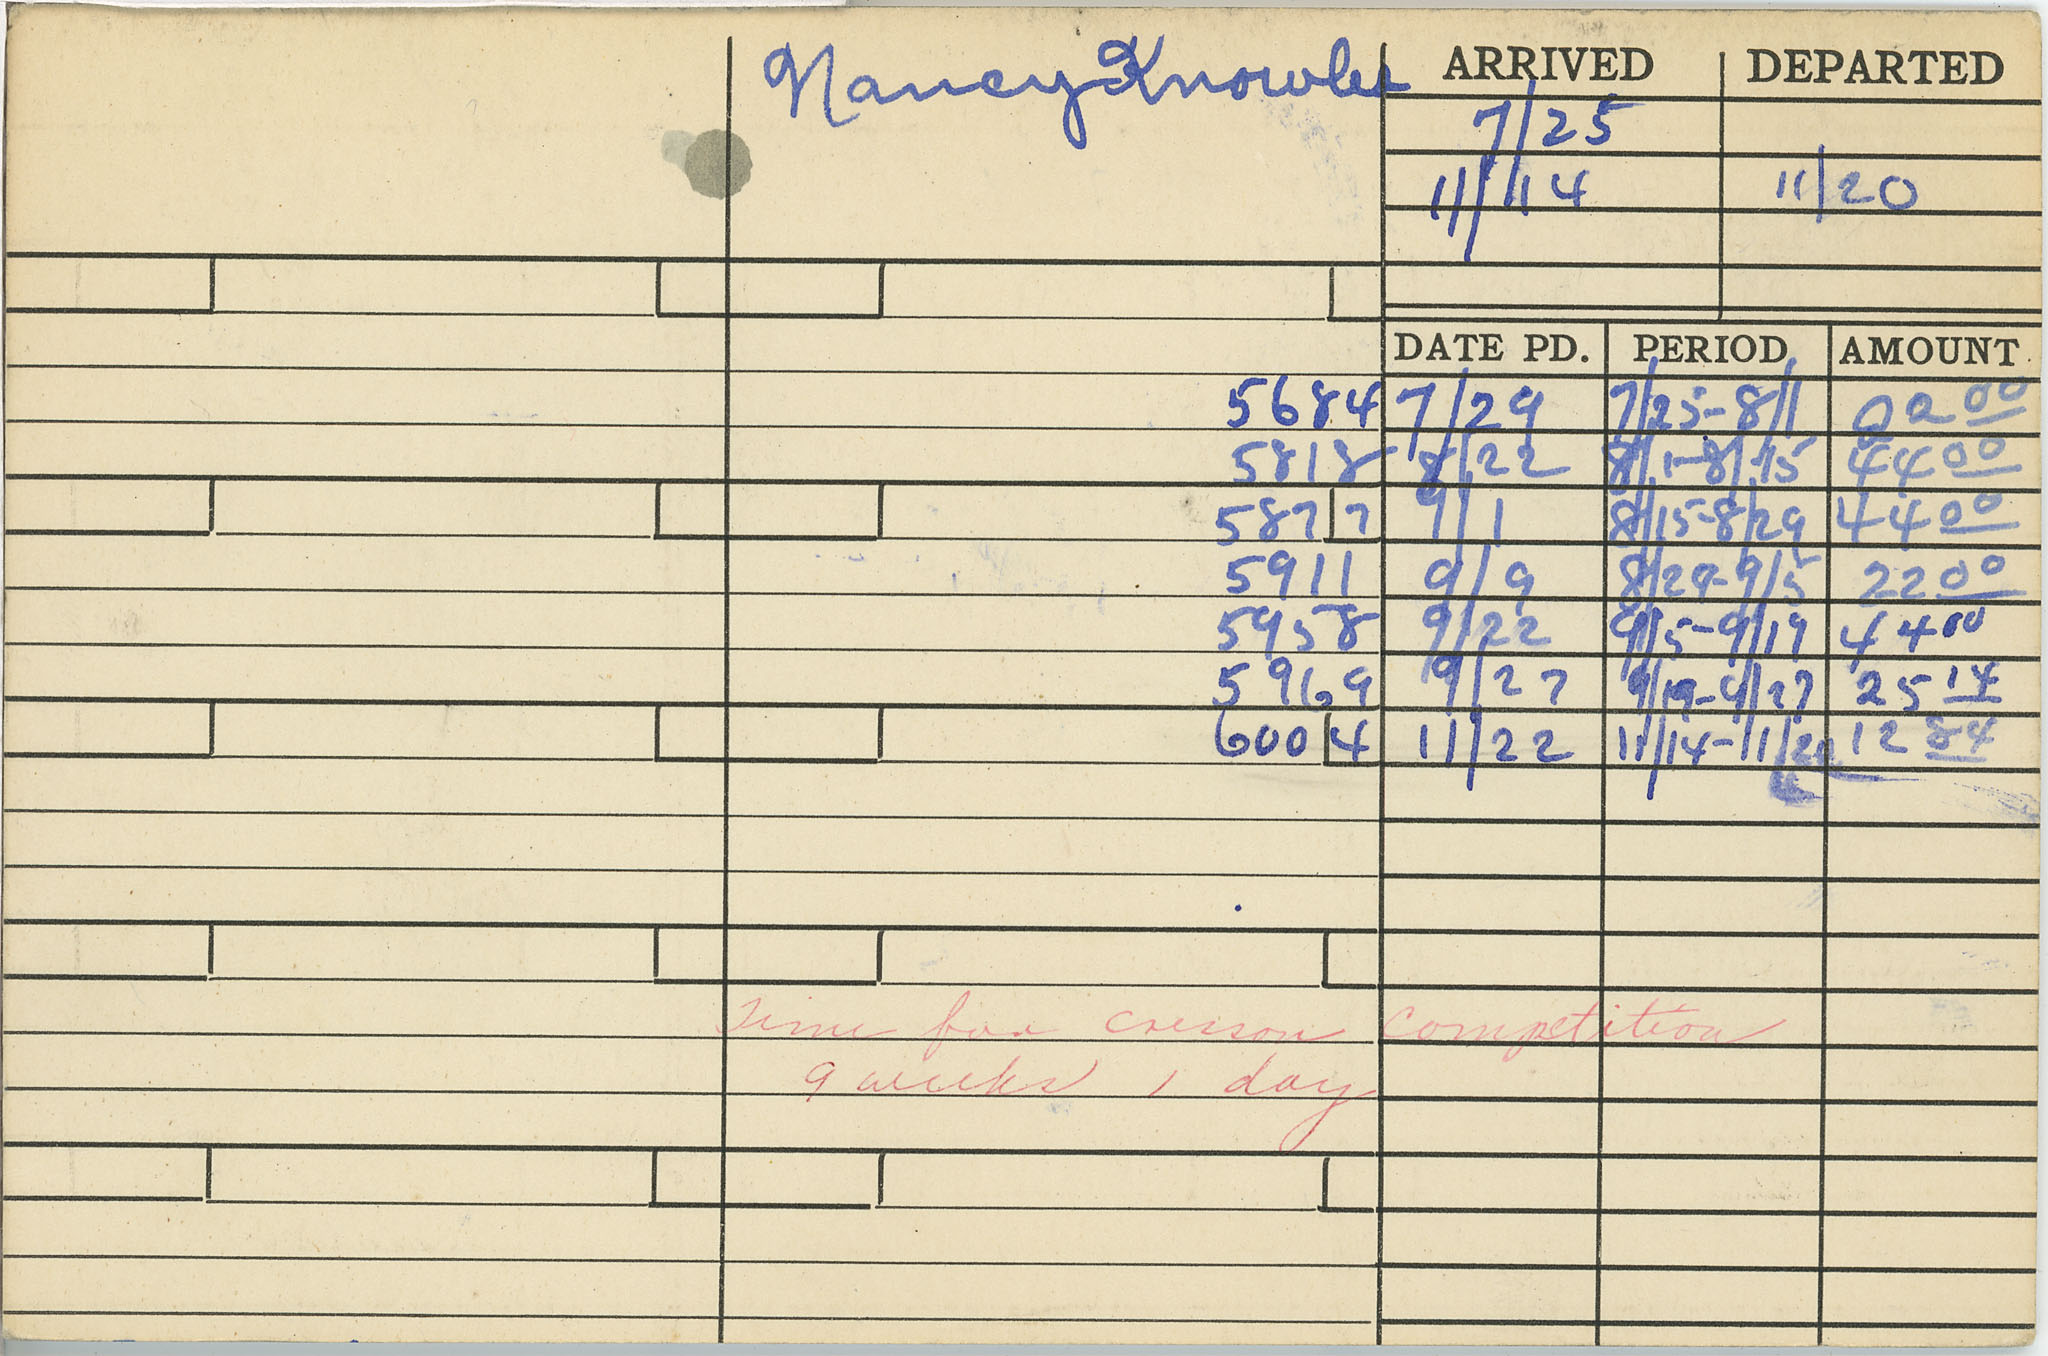 Nancy Knowles
ARRIVED DEPARTED
7/25
11/14 11/20
DATE PD. PERIOD AMOUNT
5684 7/29 7/25-8/1 22 00
5818 8/22 8/1-8/15 44 00
5877 9/1 8/15-8/29 44 00
5911 9/9 8/29-9/5 22 00
5958 9/22 9/5-9/19 44 00
5969 9/27 9/19-9/27 25 14
6004 11/22 11/14-11/20 12 84
Time for cresson competition
9 weeks 1 day